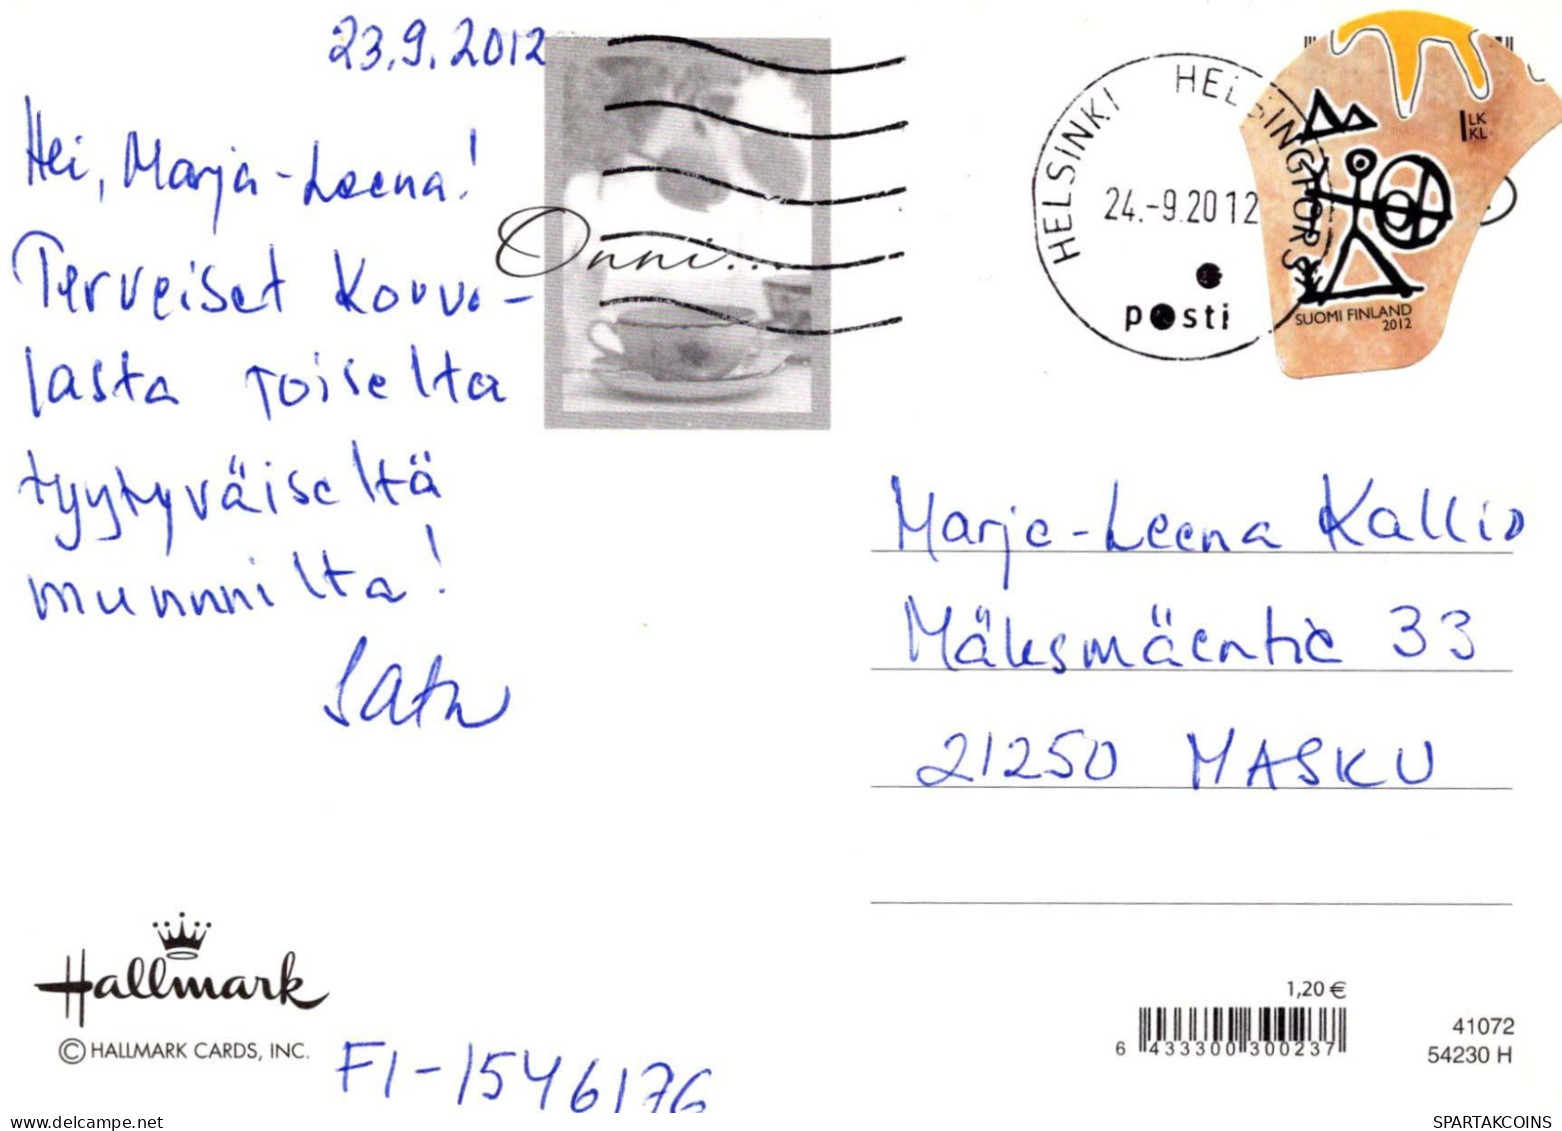 23.9.2012
Hei, Marja-Leena!
Terveiset Kouvo-
lasta toiselta
tyytyväiseltä
munnnilta!
Satu
Onni...
HELSINKI HELSINGFORS
24.-9.2012
posti
1 LK
KL
SUOMI FINLAND
2012
Marja-Leena Kallio
Mäksmäentie 33
21250 MASKU
Hallmark
© HALLMARK CARDS, INC.
FI-1546176
1,20 €
6 433300 300237
41072
54230 H
https://www.delcampe.net
SPARTAKCOINS